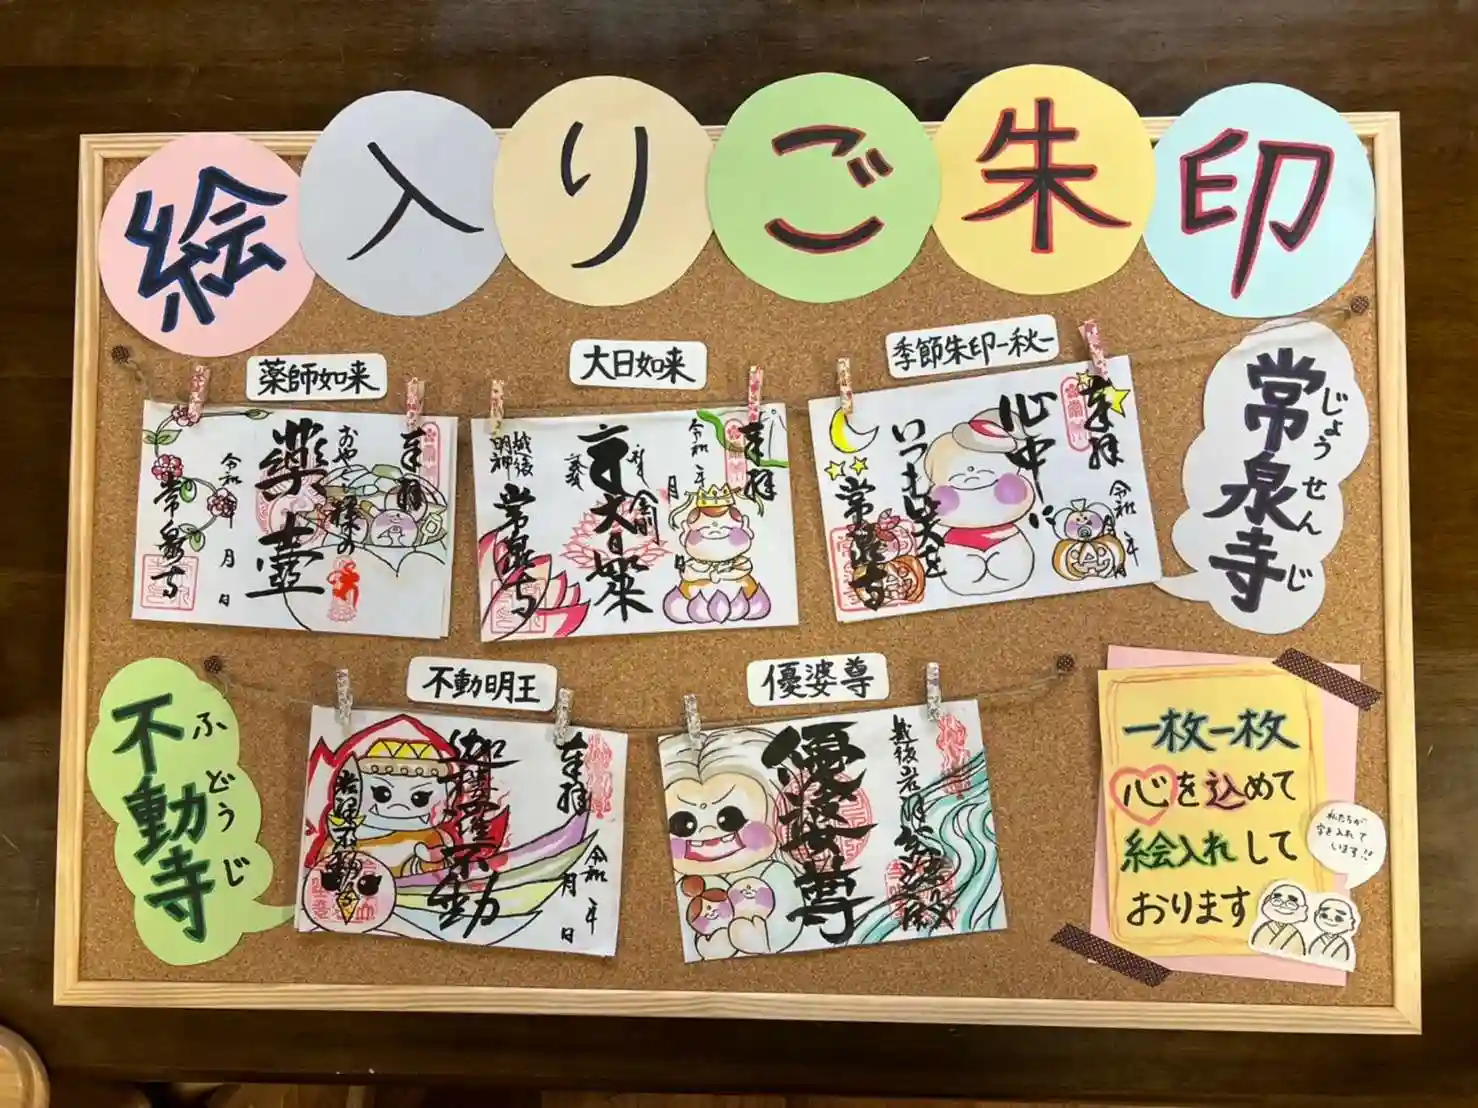 絵入りご朱印
薬師如来
大日如来
季節朱印-秋-
常泉寺
じょうせんじ
奉拝
おやこ様の
薬壺
令和 年 月 日
常泉寺
奉拝
令和 年 月 日
金剛
大日如来
越後
明神
常泉寺
奉拝
心中
いつも笑を
令和 年 月 日
常泉寺
不動明王
優婆尊
不動寺
ふどうじ
奉拝
令和 年 月 日
優婆尊
一枚一枚
心を込めて
絵入れして
おります
私たちが
字を入れて
います!!